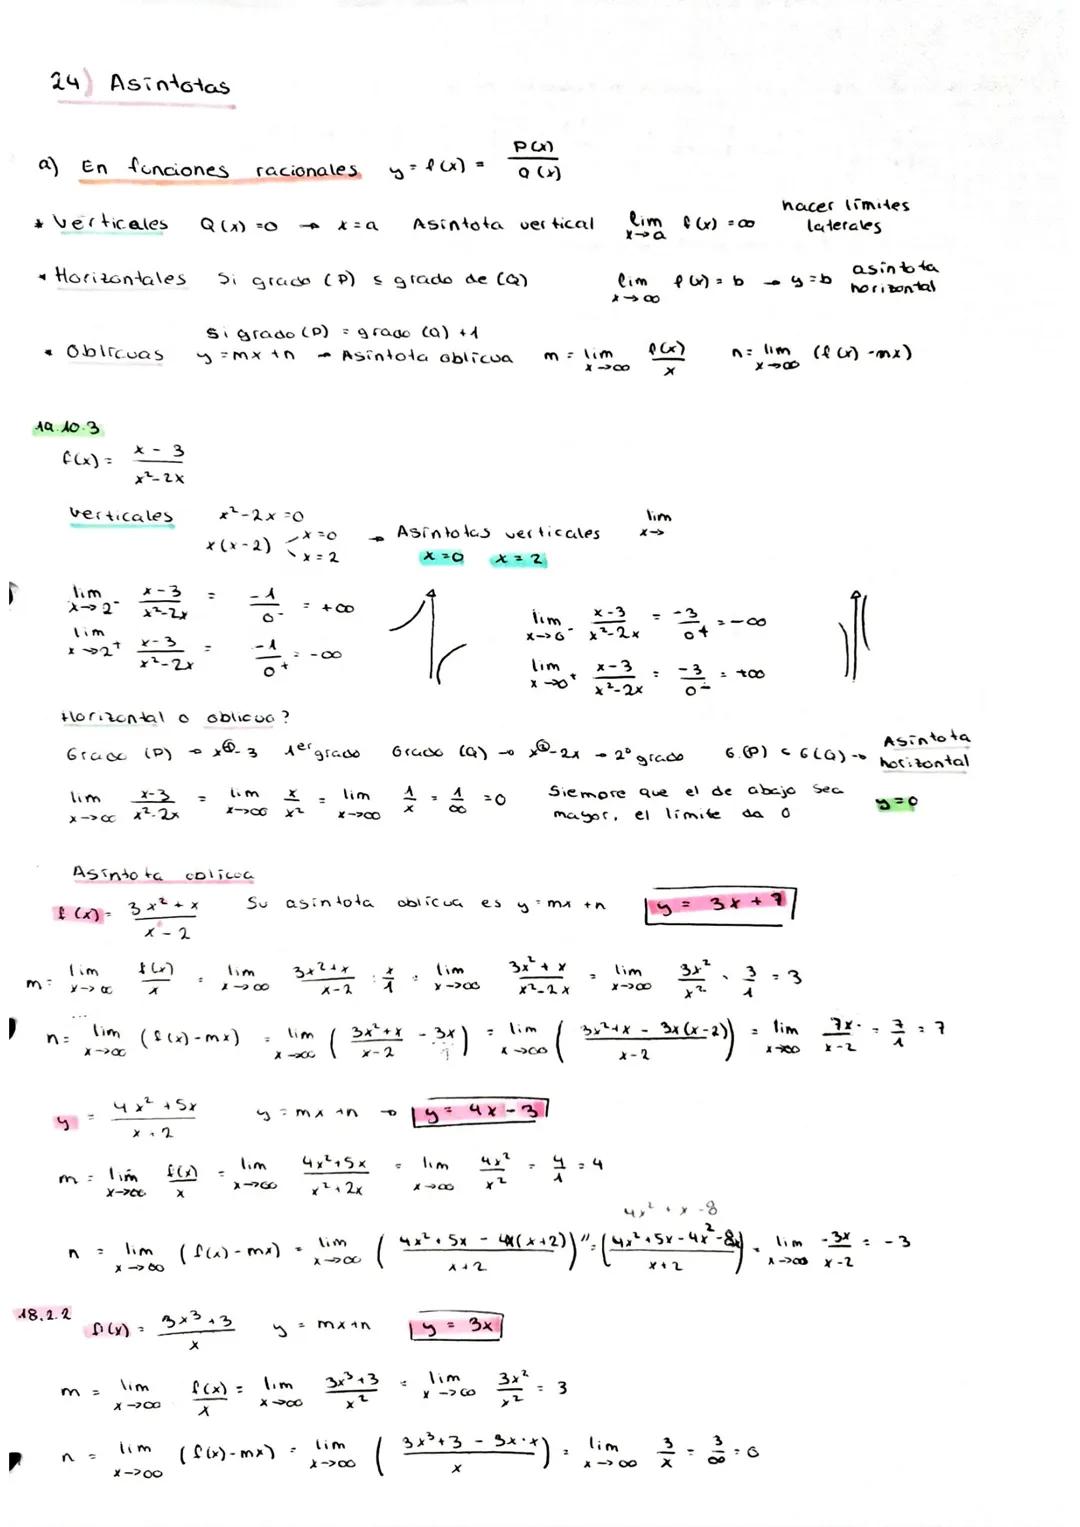 24) Asíntotas
a) En funciones racionales y = f(x) = P(x) / Q(x)
* Verticales Q(x) = 0 → x = a Asíntota vertical lim x→a f(x) = ∞ hacer límites laterales
* Horizontales Si grado (P) ≤ grado de (Q) lim x→∞ f(x) = b → y = b asíntota horizontal
Si grado (P) = grado (Q) + 1
* Oblicuas y = mx + n → Asíntota oblicua m = lim x→∞ f(x) / x n = lim x→∞ (f(x) - mx)
19.10.3
f(x) = x - 3 / x² - 2x
Verticales x² - 2x = 0
x(x - 2) x = 0 x = 2 → Asíntotas verticales lim x→
x = 0 x = 2
lim x→2⁻ x - 3 / x² - 2x = -1 / 0⁻ = +∞ lim x→0⁻ x - 3 / x² - 2x = -3 / 0⁺ = -∞
lim x→2⁺ x - 3 / x² - 2x = -1 / 0⁺ = -∞ lim x→0⁺ x - 3 / x² - 2x = -3 / 0⁻ = +∞
Horizontal o oblicua?
Grado (P) → x① - 3 1er grado Grado (Q) → x② - 2x → 2º grado G.(P) < G(Q) → Asíntota horizontal
lim x→∞ x - 3 / x² - 2x = lim x→∞ x / x² = lim x→∞ 1 / x = 1 / ∞ = 0 Siempre que el de abajo sea y = 0
mayor, el límite da 0
Asíntota oblicua
f(x) = 3x² + x / x - 2 Su asíntota oblicua es y = mx + n y = 3x + 7
m = lim x→∞ f(x) / x = lim x→∞ 3x² + x / x - 2 : x / 1 = lim x→∞ 3x² + x / x² - 2x = lim x→∞ 3x² / x² = 3 / 1 = 3
n = lim x→∞ (f(x) - mx) = lim x→∞ (3x² + x / x - 2 - 3x) = lim x→∞ (3x² + x - 3x(x - 2) / x - 2) = lim x→∞ 7x / x - 2 = 7 / 1 = 7
y = 4x² + 5x / x + 2 y = mx + n → y = 4x - 3
m = lim x→∞ f(x) / x = lim x→∞ 4x² + 5x / x² + 2x = lim x→∞ 4x² / x² = 4 / 1 = 4
4x² + x - 8
n = lim x→∞ (f(x) - mx) = lim x→∞ (4x² + 5x - 4x(x + 2) / x + 2) = (4x² + 5x - 4x² - 8x / x + 2) = lim x→∞ -3x / x - 2 = -3
18.2.2
f(x) = 3x³ + 3 / x y = mx + n y = 3x
m = lim x→∞ f(x) / x = lim x→∞ 3x³ + 3 / x² = lim x→∞ 3x² / x² = 3
n = lim x→∞ (f(x) - mx) = lim x→∞ (3x³ + 3 - 3x · x / x) = lim x→∞ 3 / x = 3 / ∞ = 0